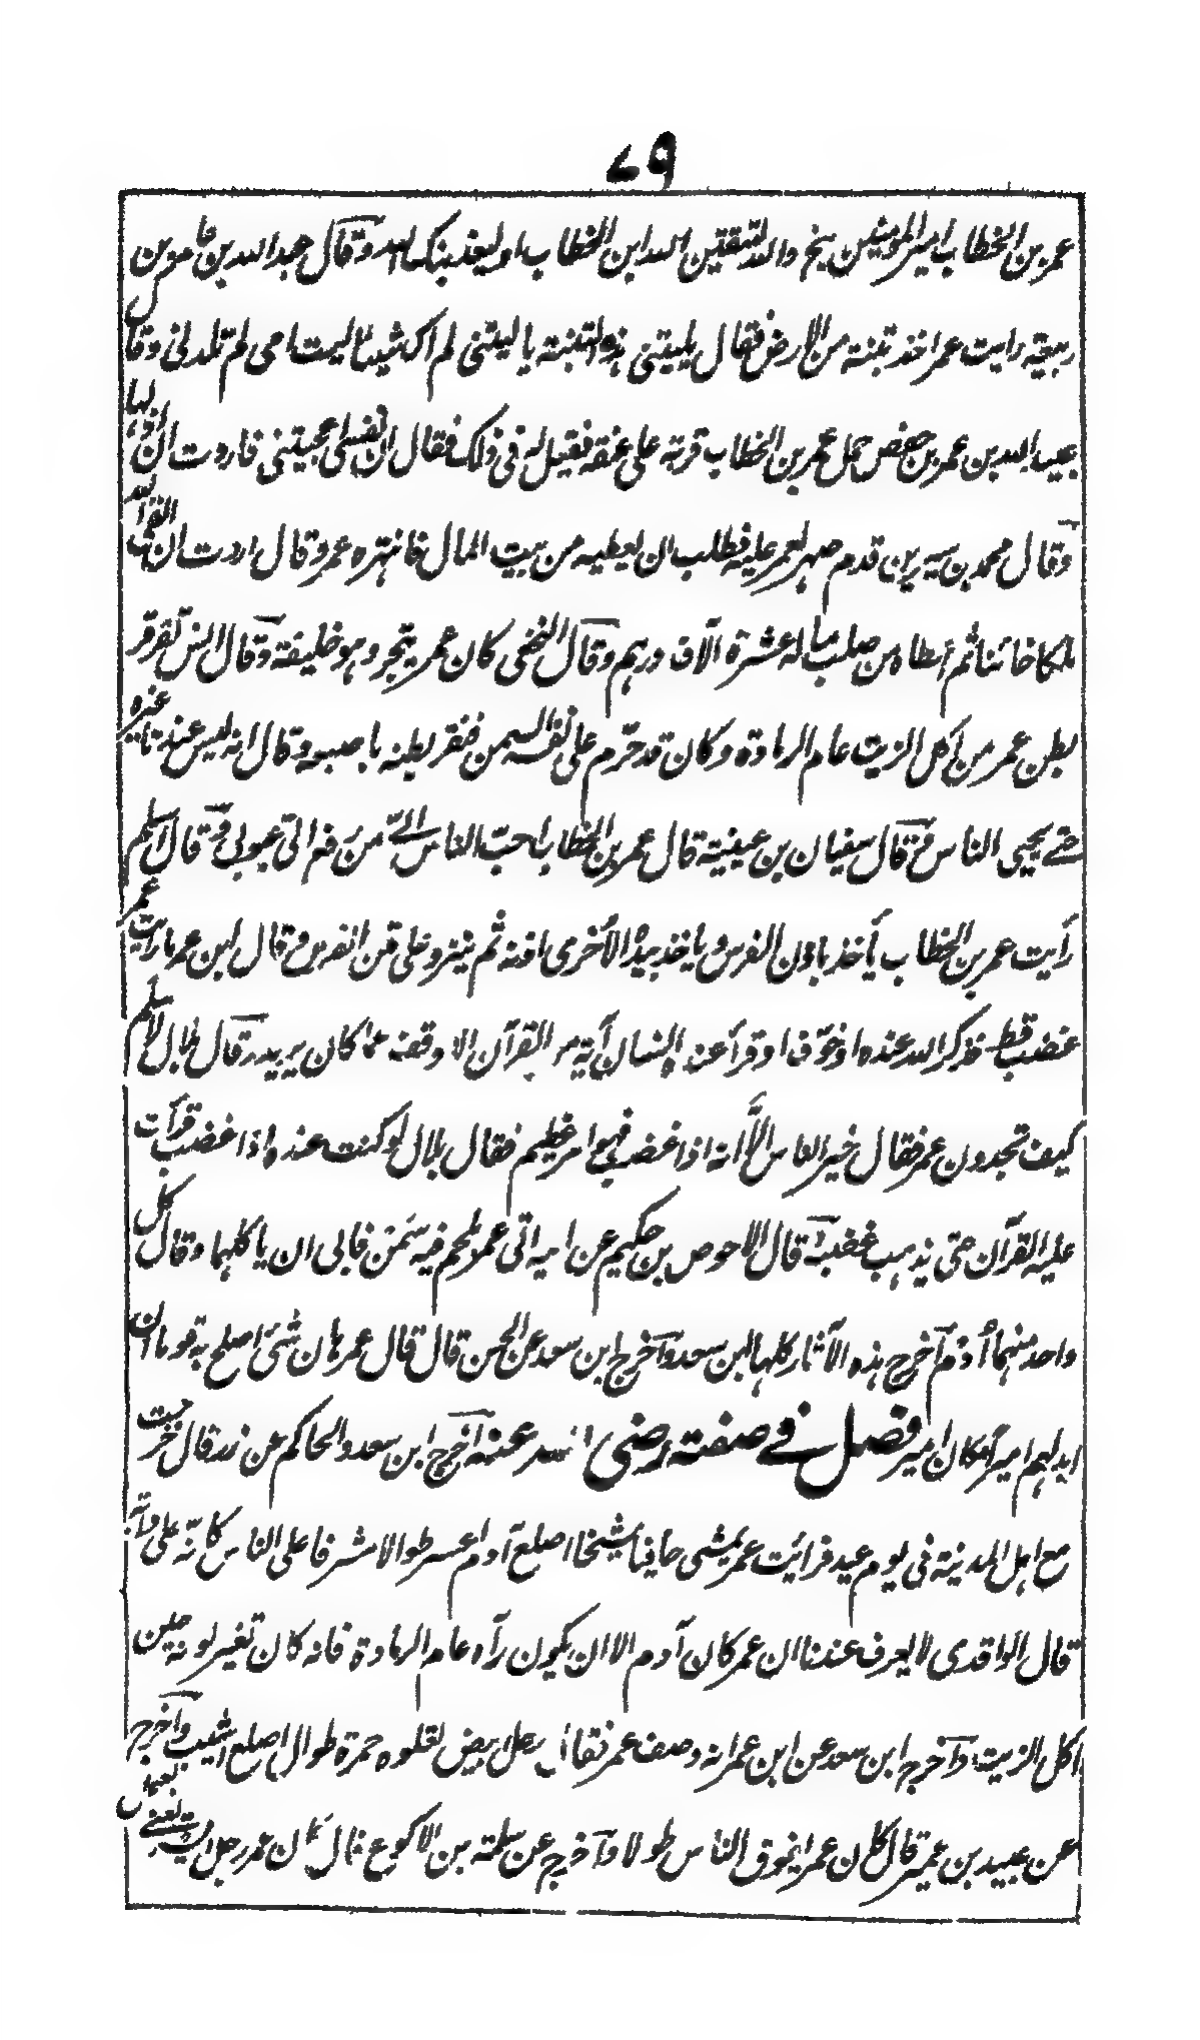 ٧٩
عمر بن الخطاب امير المومنين بخ والله لتتقين الله ابن الخطاب او ليعذبنك الله وقال عبد الله بن عامر بن
ربيعة رايت عمر اخذ تبنة من الارض فقال يليتنى هذه التبنة يا ليتنى لم اك شيئا ليت امى لم تلدنى وقال
عبيد الله بن عمر بن حفص حمل عمر بن الخطاب قربة على عنقه فقيل له فى ذلك فقال ان نفسى اعجبتنى فاردت ان اذلها
وقال محمد بن سيرين قدم صهر لعمر عليه فطلب ان يعطيه من بيت المال فانتهره عمر وقال اردت ان القى الله
ملكا خائنا ثم اعطاه من صلب ماله عشرة الاف درهم وقال النخعى كان عمر يتجر وهو خليفة وقال انس تقرقر
بطن عمر من اكل الزيت عام الرمادة وكان قد حرّم على نفسه السمن فنقر بطنه باصبعه وقال انه ليس عندنا غيره
حتے يحيى الناس وقال سفيان بن عيينة قال عمر بن الخطاب احبّ الناس الىّ من رفع الىّ عيوبى وقال اسلم
رأيت عمر بن الخطاب يأخذ باذن الفرس وياخذ بيده الأخرى اذنه ثم ينزو على متن الفرس وقال ابن عمر ما رايت عمر
غضب قط فذكر الله عنده او خوّف او قرأ عنده انسان آية من القرآن الا وقف عما كان يريد وقال بلال لاسلم
كيف تجدون عمر فقال خير الناس إلّا انه اذا غضب فهو امر عظيم فقال بلال لو كنت عنده اذا غضب قرأت
عليه القرآن حتى يذهب غضبه وقال الاحوص بن حكيم عن ابيه اتى عمر بلحم فيه سمن فابى ان ياكلهما وقال كل
واحد منهما أدم آخرج هذه الآثار كلها ابن سعد وآخرج ابن سعد عن الحسن قال قال عمر هان شئ اصلح به قوما ان
ابدلهم اميرا مكان امير فصل فے صفته رضى الله عنه آخرج ابن سعد والحاكم عن زر قال خرجت
مع اهل المدينة فى يوم عيد فرايت عمر يمشى حافيا شيخا اصلع آدم اعسر طوالا مشرفا على الناس كانّه على دآبة
قال الواقدى لا يعرف عندنا ان عمر كان آدم الا ان يكون رآه عام الرمادة فانه كان تغير لونه حين
اكل الزيت وآخرج ابن سعد عن ابن عمر انه وصف عمر فقال رجل ابيض تعلوه حمرة طوال اصلع اشيب وآخرج
عن عبيد بن عمير قال كان عمر يفوق الناس طولا وآخرج عن سلمة بن الاكوع قال كان عمر رجل ايسر يعنى